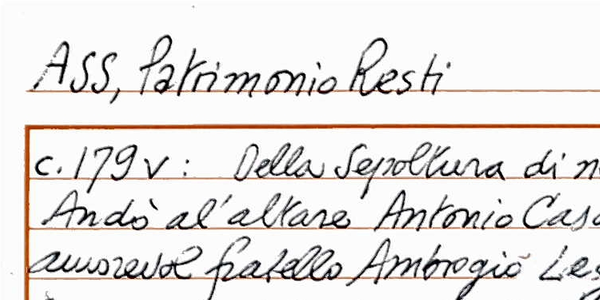 ASS, Patrimonio Resti
c. 179v: Della Sepoltura di
Andò al'altare Antonio
amorevol fratello Ambrogio